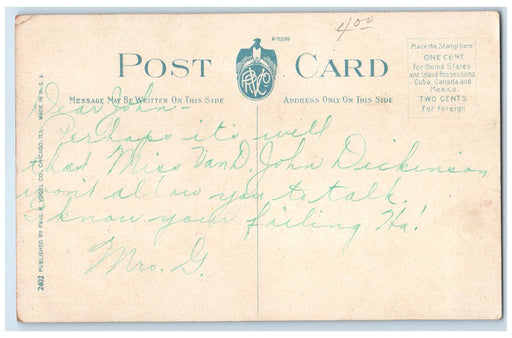 4.00
A-11299
POST CARD
PRVCo
Place the Stamp here
ONE CENT
For United States
and Island Possessions
Cuba, Canada and
Mexico.
TWO CENTS
For foreign.
MESSAGE MAY BE WRITTEN ON THIS SIDE
ADDRESS ONLY ON THIS SIDE
Dear John -
Perhaps it's well
that Miss Van D. John Dickinson
won't allow you to talk.
I know your failing Ha!
Mrs. G.
2402 PUBLISHED BY PAUL R. VOGEL CO., CHICAGO, ILL. MADE IN U.S.A.